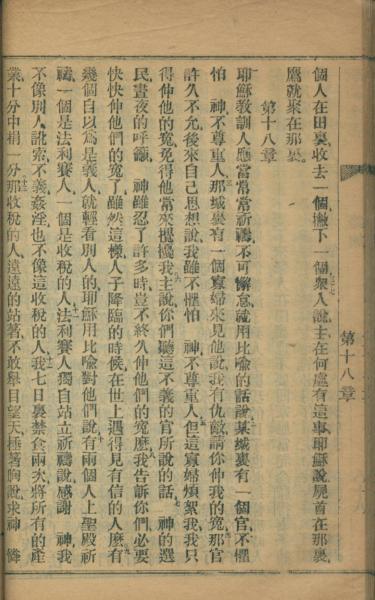 第十八章
個人在田裏、收去一個、撇下一個、衆人說、主在何處有這事、耶穌說、屍首在那裏、
鷹就聚在那裏、
第十八章
耶穌教訓人應當常常祈禱、不可懈怠、就用比喻的話說、某城裏有一個官、不懼
怕 神、不尊重人、那城裏有一個寡婦來見他說、我有仇敵、請你伸我的冤、那官
許久不允、後來自己思想說、我雖不懼怕 神、不尊重人、但這寡婦煩絮我、我只
得伸他的冤、免得他常來攪擾我、主說、你們聽這不義的官所說的話、 神的選
民、晝夜的呼籲、 神雖忍了許多時、豈不終久伸他們的冤麼、我告訴你們、必要
快快伸他們的冤了、雖然這樣、人子降臨的時候、在世上遇得見有信的人麼、有
幾個自以爲是義人、就輕看別人的、耶穌用比喻對他們說、有兩個人上聖殿祈
禱、一個是法利賽人、一個是收稅的人、法利賽人獨自站立祈禱說、感謝 神、我
不像別人、訛索、不義、姦淫、也不像這收稅的人、我七日裏禁食兩次、將所有的產
業、十分中捐一分、那收稅的人、遠遠的站著、不敢舉目望天、捶著胸說、求神 憐